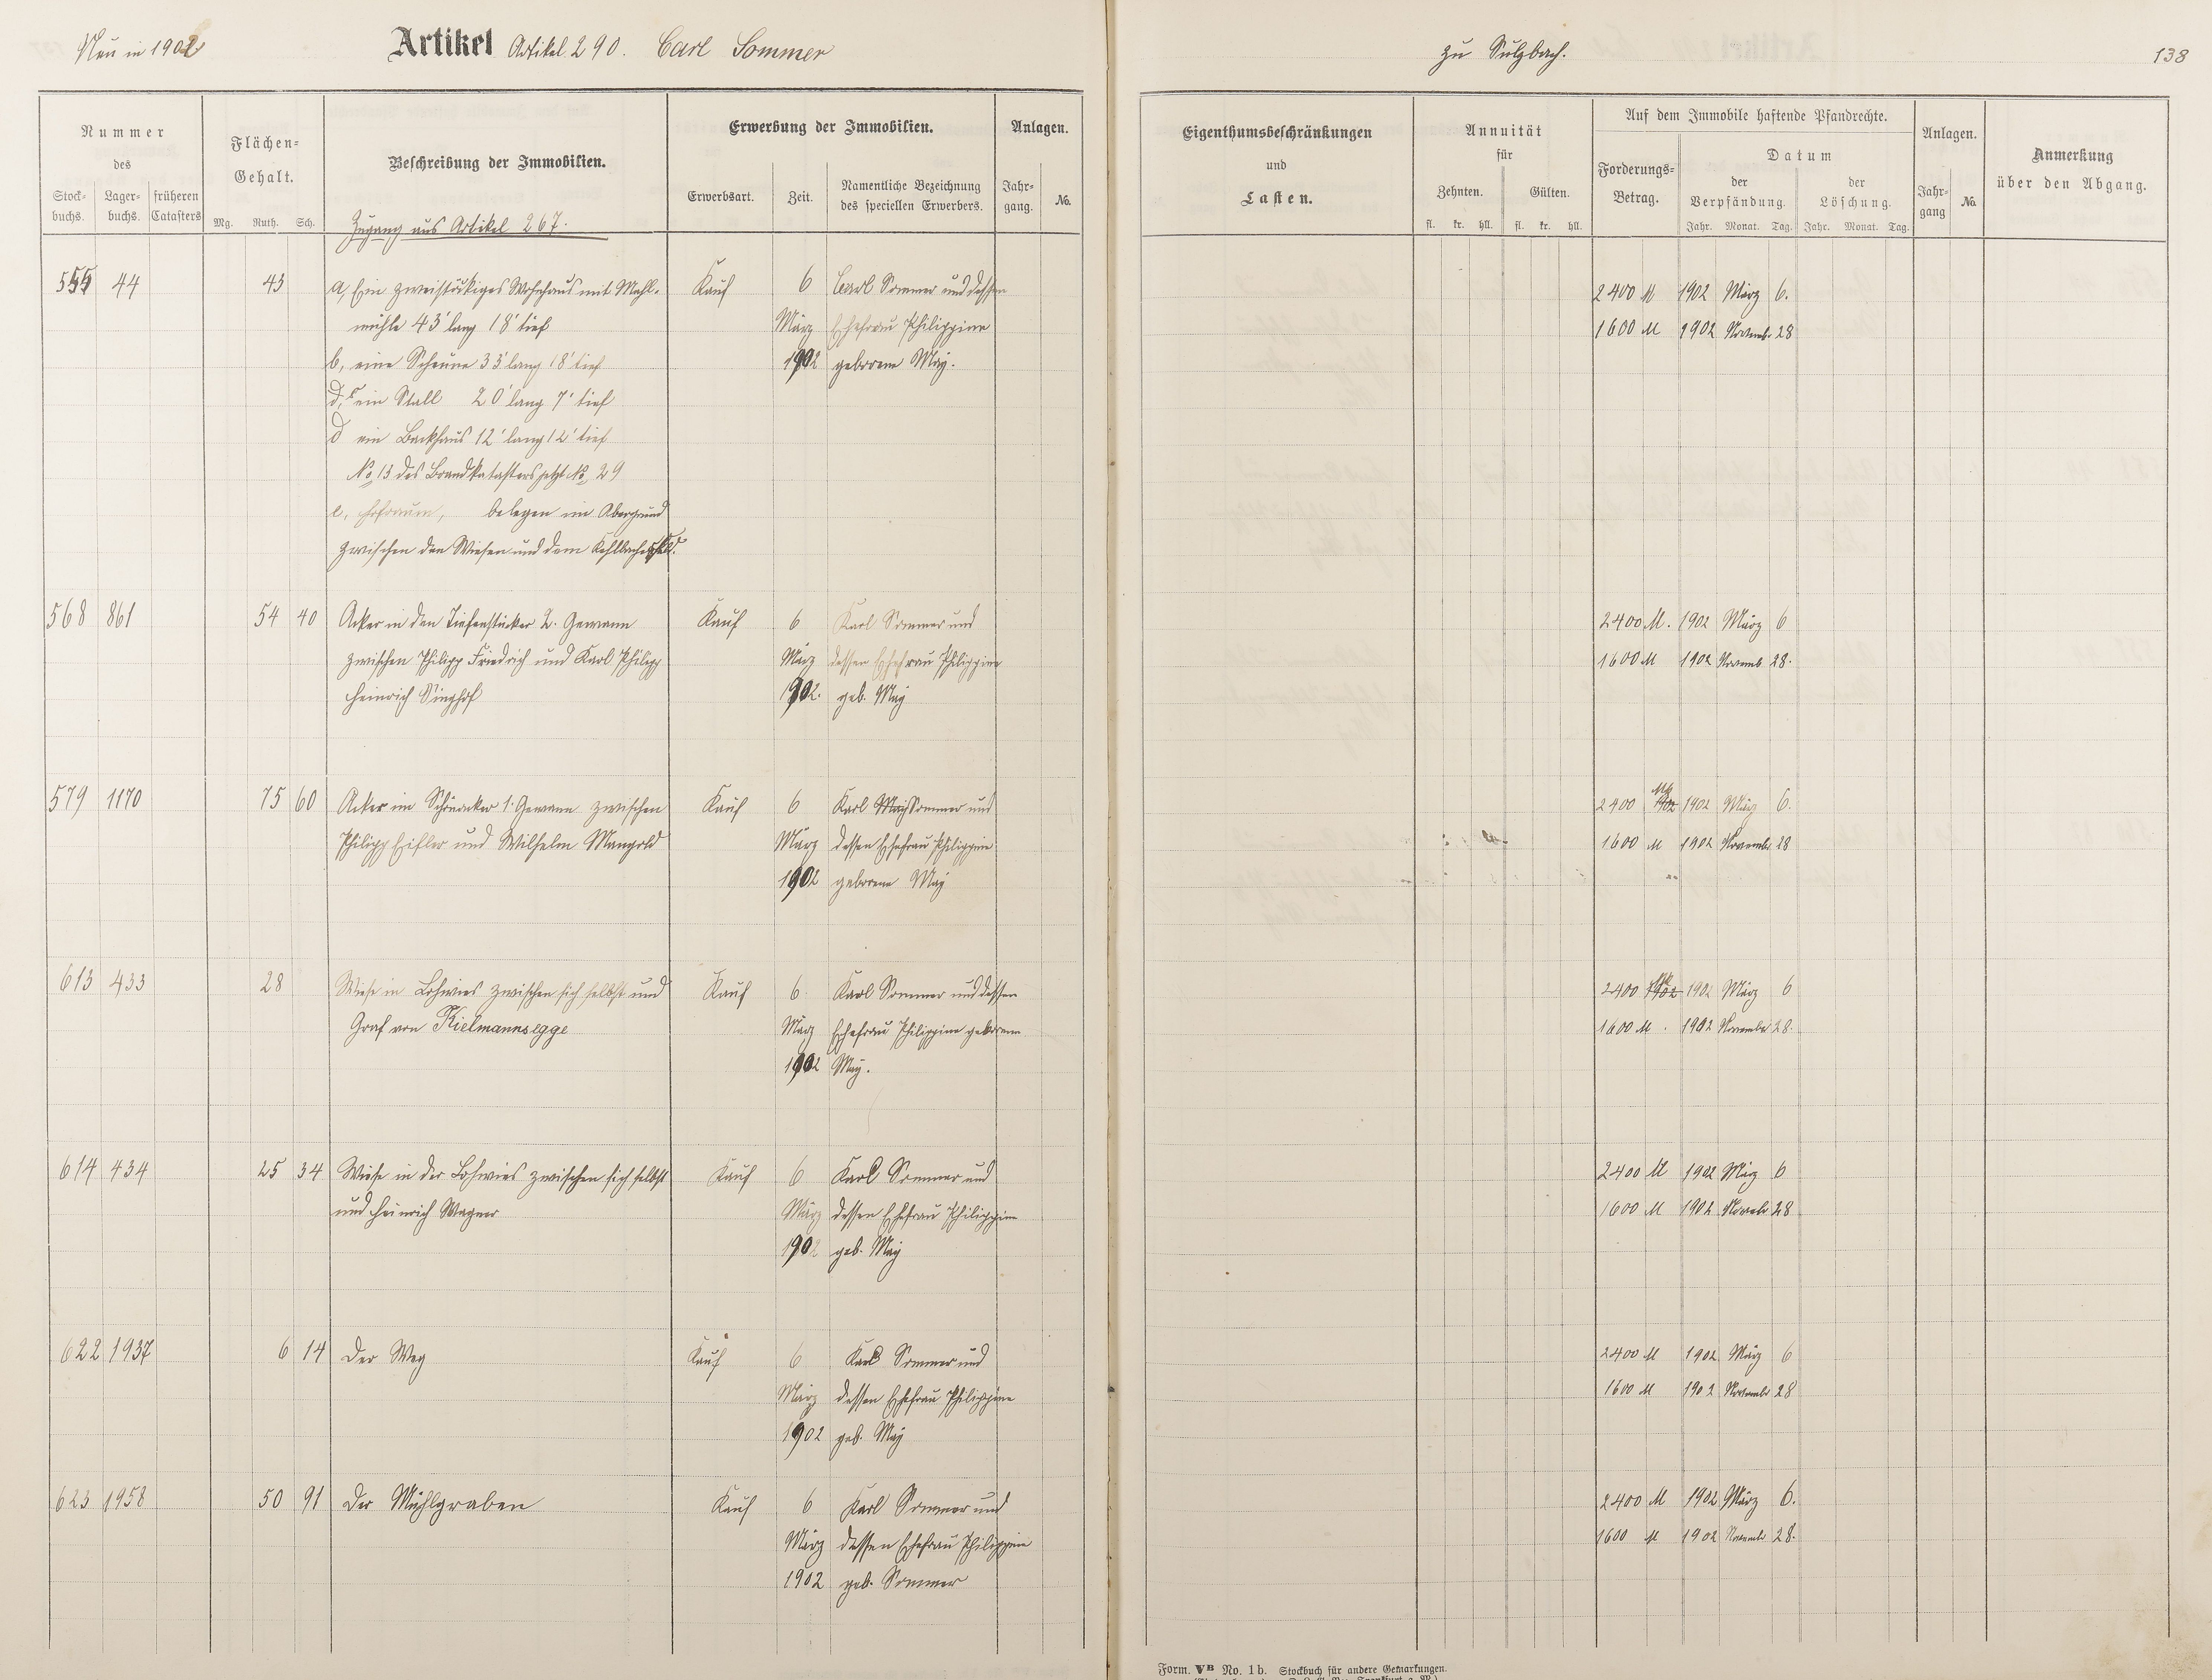 Neu in 1902
Artikel Artikel 290. Carl Sommer
zu Sulzbach.
138
Nummer
des
Stock-
buchs.
Lager-
buchs.
früheren
Catasters
Flächen-
Gehalt.
Mg. Ruth. Sch.
Beschreibung der Immobilien.
Erwerbung der Immobilien.
Erwerbsart.
Zeit.
Namentliche Bezeichnung
des speciellen Erwerbers.
Anlagen.
Jahr-
gang.
No.
Eigenthumsbeschränkungen
und
Lasten.
Annuität
für
Zehnten. Gülten.
fl. kr. hll. fl. kr. hll.
Auf dem Immobile haftende Pfandrechte.
Forderungs-
Betrag.
Datum
der
Verpfändung.
der
Löschung.
Jahr. Monat. Tag. Jahr. Monat. Tag.
Anlagen.
Jahr-
gang
No.
Anmerkung
über den Abgang.
Zugang aus Artikel 267.
44 43 a, Ein zweistöckiges Wohnhaus mit Mahl- Kauf 6 Carl Sommer und dessen 2400 M 1902 März 6.
mühle 43' lang 18' tief März Ehefrau Philippine 1600 M 1902 Novemb. 28
b, eine Scheune 33' lang 18' tief 1902 geborene May.
ein Stall 20' lang 7' tief
d ein Backhaus 12' lang 12' tief
No 13 des Brandkatasters jetzt No 29
e, Hofraum, belegen im
zwischen den Wiesen und dem
568 861 54 40 Acker in den Tiefenstücker 2. Gewann Kauf 6 Karl Sommer und 2400 M. 1902 März 6
zwischen Philipp Friedrich und Karl Philipp März dessen Ehefrau Philippine 1600 M 1902 Novemb. 28.
Heinrich Singhof 1902. geb. May
579 1170 75 60 Acker im Schönacker 1. Gewann zwischen Kauf 6 Karl May Sommer und 2400 M 1902 1902 März 6.
Philipp Eifler und Wilhelm Mangold März dessen Ehefrau Philippine 1600 M 1902 November 28
1902 geborene May
613 433 28 Wiese in Lohwies zwischen sich selbst und Kauf 6. Karl Sommer und dessen 2400 M 1902 1902 März 6
Graf von Kielmannsegge März Ehefrau Philippine geborene 1600 M. 1902 November 28.
1902 May.
614 434 25 34 Wiese in der Lohwies zwischen sich selbst Kauf 6 Karl Sommer und 2400 M 1902 März 6
und Heinrich Wagner März dessen Ehefrau Philippine 1600 M 1902 Novembr 28
1902 geb. May
622 1937 6 14 Der Weg Kauf 6 Karl Sommer und 2400 M 1902 März 6
März dessen Ehefrau Philippine 1600 M 1902 Novembr 28
1902 geb. May
623 1958 50 91 Der Mühlgraben Kauf 6 Karl Sommer und 2400 M 1902 März 6.
März dessen Ehefrau Philippine 1600 M 1902 Novembr 28.
1902 geb. Sommer
Form. VB No. 1b. Stockbuch für andere Gemarkungen.